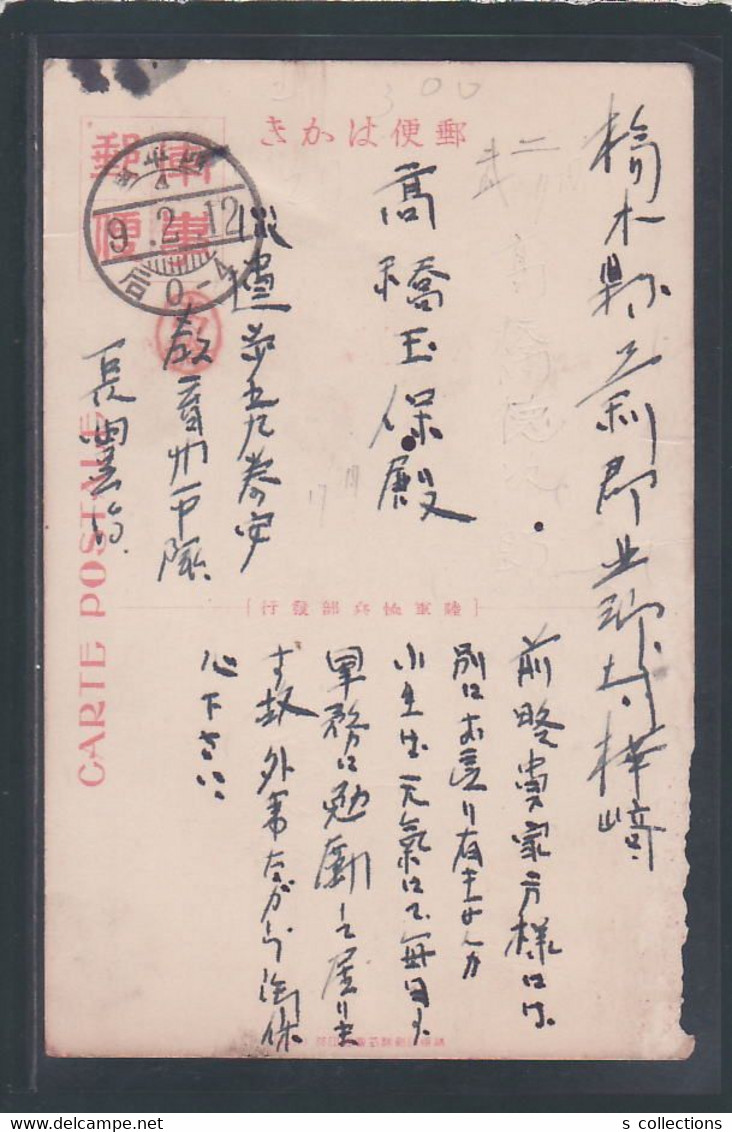 郵便はかき
軍事
郵便
9.2.12
后0-4
CARTE POSTALE
栃木縣足利郡北郷村樺崎
高橋玉保殿
派遣歩五九奉安
長
[陸軍恤兵部發行]
前略貴家方様には
別にお変り有ませんか
小生も元氣にて毎日
軍務に勉勵して居りま
す故外事ながら御休
心下さい
300
s collections